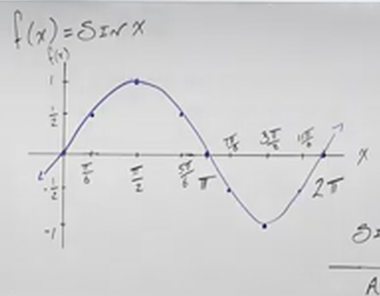 f(x) = SIN x
f(x)
1
1/2
π/6
π/2
5π/6
π
7π/6
3π/2
11π/6
2π
x
-1/2
-1
SI
A